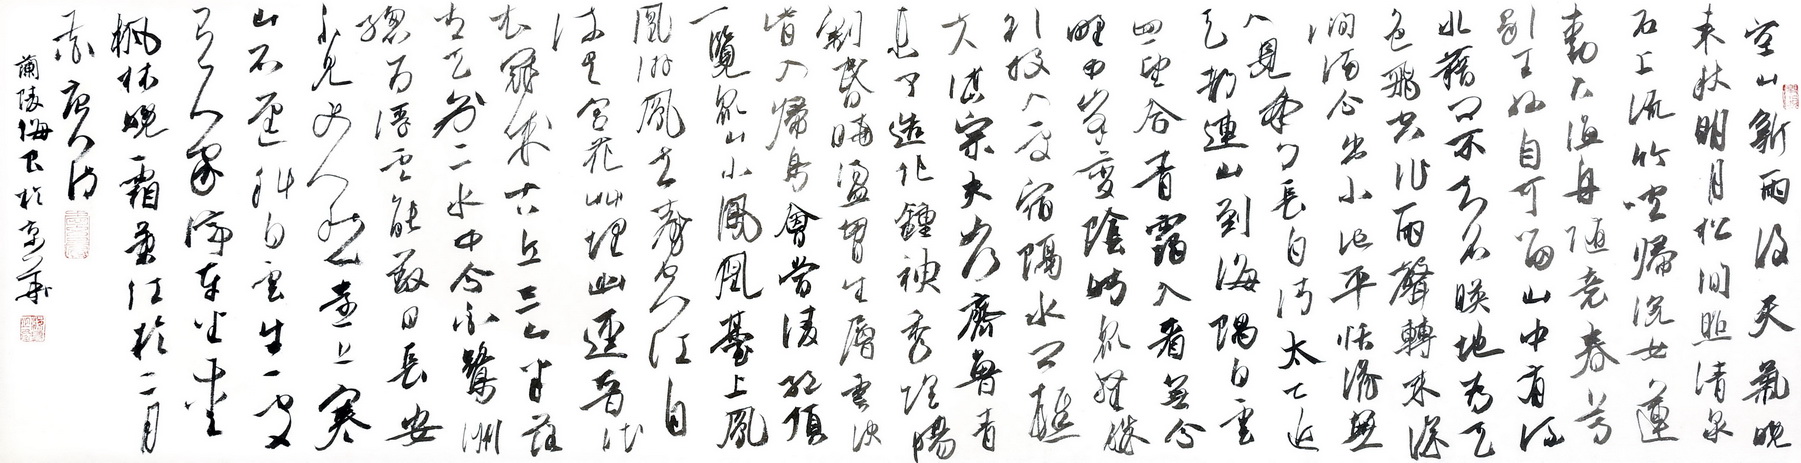 空山新雨後天氣晚
来秋明月松間照清泉
石上流竹喧歸浣女蓮
動下漁舟随意春芳
歇王孫自可留山中有流
水藉問不知名映地為天
色飛空作雨聲轉来深
澗滿合出小池平恬澹無
人見年年長自清太乙近
天都連山到海隅白雲
四望合青靄入看無分
野中峯變陰晴衆壑殊
欲投人處宿隔水問樵
夫岱宗夫如何齊魯青
未了造化鍾神秀陰陽
割昏曉盪胸生層雲决
眥入歸鳥會當凌絶頂
一覽衆山小鳳凰臺上鳳
凰游鳳去臺空江自
流吴宫花草埋幽逕晋代
衣冠成古丘三山半落
青天外二水中分白鷺洲
總为浮雲能蔽日長安
不見使人愁遠上寒
山石逕斜白雲生處
有人家停車坐愛
枫林晚霜葉红於二月
花 唐人诗
蘭陵 於京華